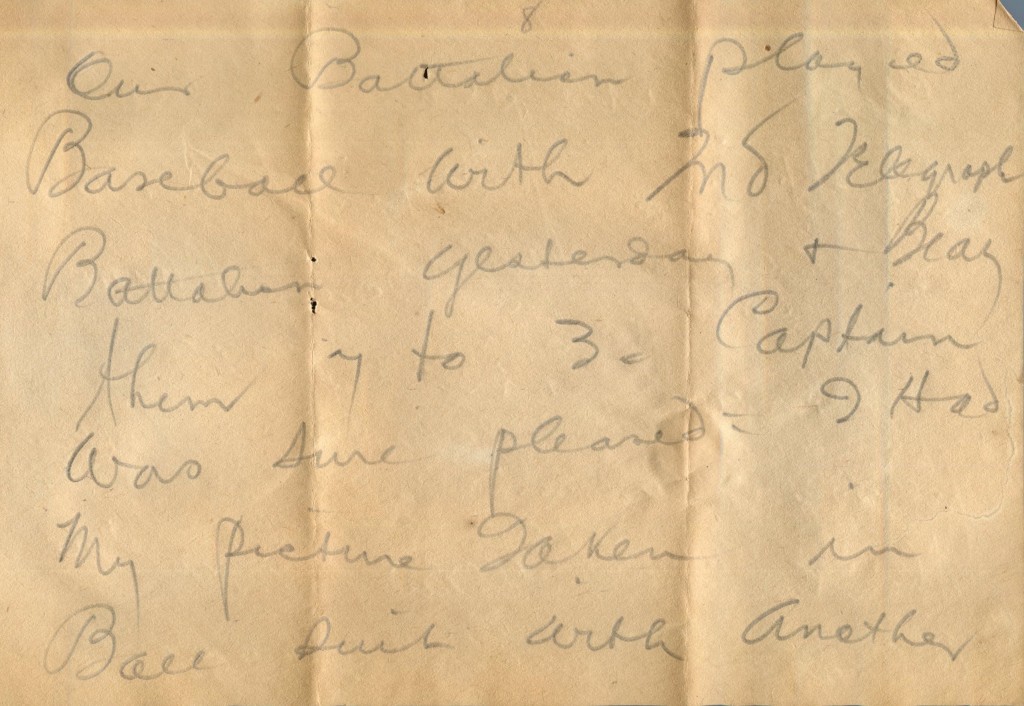 8
Our Battalion played
Baseball with Telegraph
Battalion yesterday + Beat
them 7 to 3. Captain
was sure pleased = I Had
My picture Taken in
Ball suit with Another